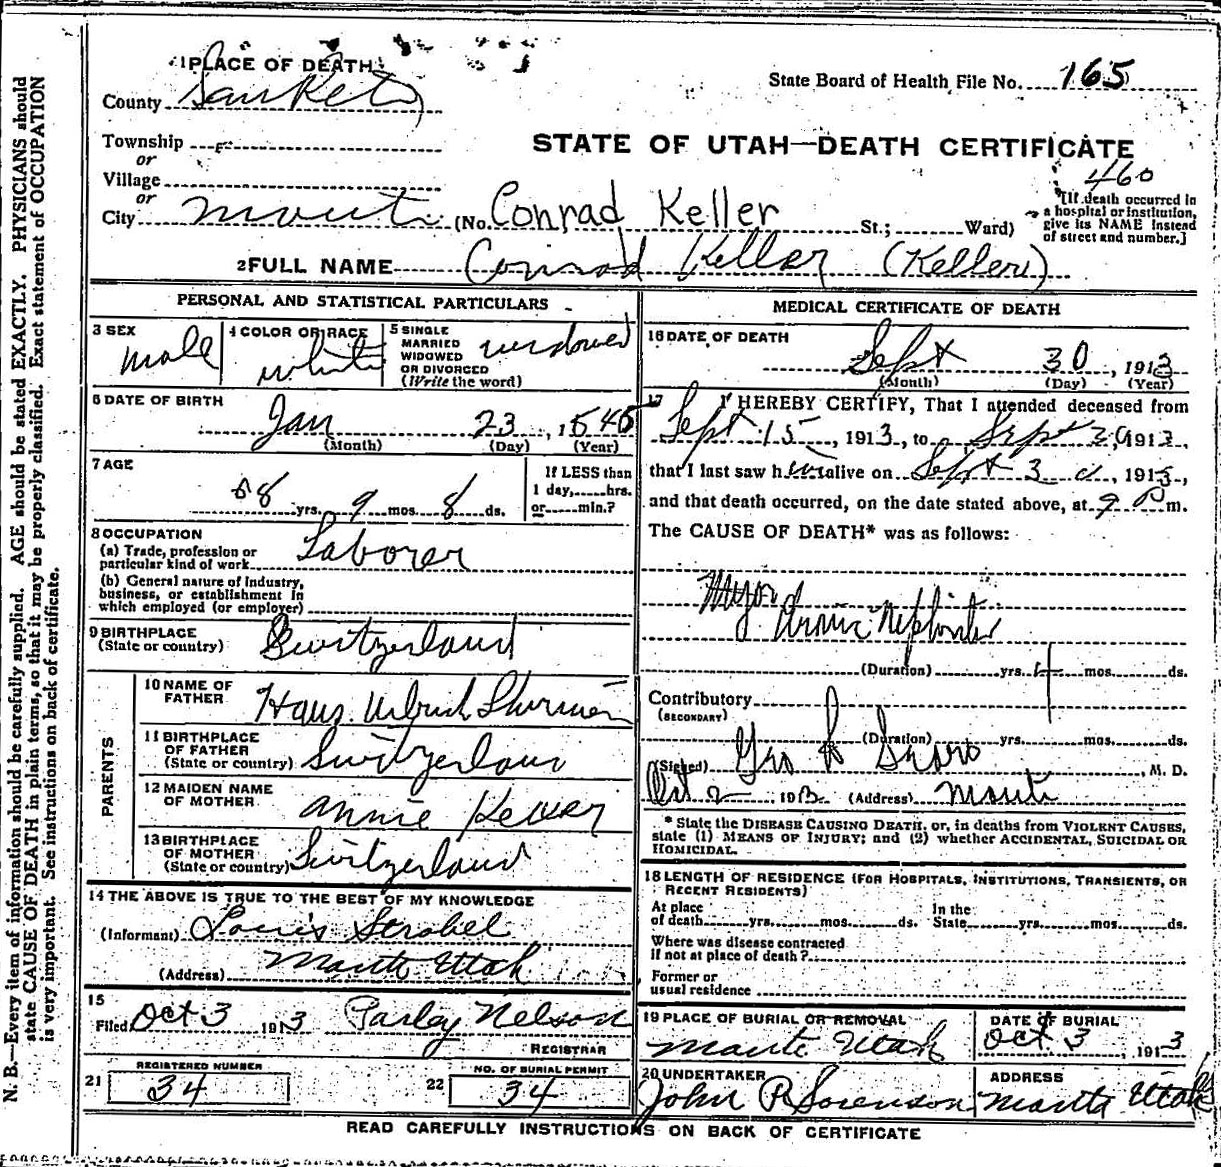 N. B.—Every item of information should be carefully supplied. AGE should be stated EXACTLY. PHYSICIANS should
state CAUSE OF DEATH in plain terms, so that it may be properly classified. Exact statement of OCCUPATION
is very important. See instructions on back of certificate.
1 PLACE OF DEATH
State Board of Health File No. 165
County SanPete
Township
STATE OF UTAH—DEATH CERTIFICATE
or
Village
460
or
City Manti (No. Conrad Keller St.; Ward)
[If death occurred in
a hospital or institution,
give its NAME instead
of street and number.]
2 FULL NAME Conrad Keller (Keller)
PERSONAL AND STATISTICAL PARTICULARS
3 SEX male
4 COLOR OR RACE white
5 SINGLE
MARRIED
WIDOWED
OR DIVORCED
(Write the word) widowed
6 DATE OF BIRTH
Jan 23, 1845
(Month) (Day) (Year)
7 AGE
68 yrs. 9 mos. 8 ds.
If LESS than
1 day, hrs.
or min.?
8 OCCUPATION
(a) Trade, profession or
particular kind of work Laborer
(b) General nature of industry,
business, or establishment in
which employed (or employer)
9 BIRTHPLACE
(State or country) Switzerland
PARENTS
10 NAME OF
FATHER Hans Ulrich
11 BIRTHPLACE
OF FATHER
(State or country) Switzerland
12 MAIDEN NAME
OF MOTHER Annie Keller
13 BIRTHPLACE
OF MOTHER
(State or country) Switzerland
14 THE ABOVE IS TRUE TO THE BEST OF MY KNOWLEDGE
(Informant) Louis Strobel
(Address) Manti Utah
15
Filed Oct 3 1913 Parley Nelson
REGISTRAR
21 REGISTERED NUMBER
34
22 NO. OF BURIAL PERMIT
34
MEDICAL CERTIFICATE OF DEATH
16 DATE OF DEATH
Sept 30, 1913
(Month) (Day) (Year)
17 I HEREBY CERTIFY, That I attended deceased from
Sept 15, 1913, to Sept 1913,
that I last saw him alive on Sept 30, 1913,
and that death occurred, on the date stated above, at 9 P m.
The CAUSE OF DEATH* was as follows:
(Duration) yrs. mos. ds.
Contributory
(SECONDARY)
(Duration) yrs. mos. ds.
(Signed) Geo L Snow, M. D.
Oct 2 1913 (Address) Manti
* State the DISEASE CAUSING DEATH, or, in deaths from VIOLENT CAUSES,
state (1) MEANS OF INJURY; and (2) whether ACCIDENTAL, SUICIDAL OR
HOMICIDAL.
18 LENGTH OF RESIDENCE (FOR HOSPITALS, INSTITUTIONS, TRANSIENTS, OR
RECENT RESIDENTS)
At place
of death yrs. mos. ds.
In the
State yrs. mos. ds.
Where was disease contracted
if not at place of death?
Former or
usual residence
19 PLACE OF BURIAL OR REMOVAL
Manti Utah
DATE OF BURIAL
Oct 3, 1913
20 UNDERTAKER
John P Sorenson
ADDRESS
Manti Utah
READ CAREFULLY INSTRUCTIONS ON BACK OF CERTIFICATE